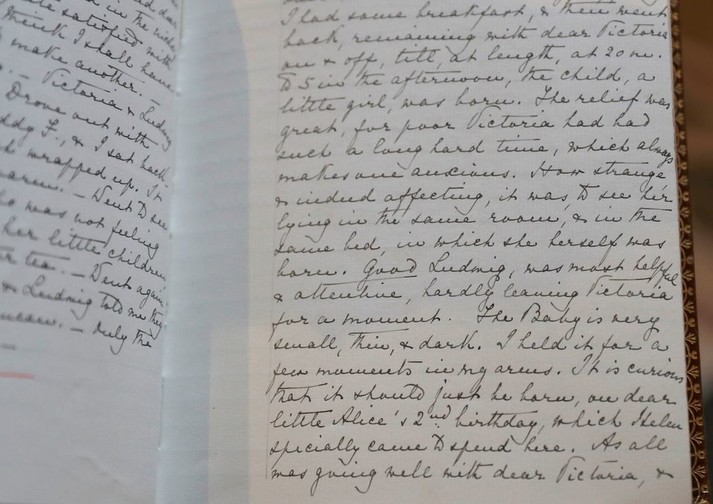 in the
satisfied with
think I shall have
make another. —
— Victoria & Ludwig
Drove out with
& I sat back
wrapped up. It
warm. — Went to see
who was not feeling
her little children
tea. — Went again
& Ludwig told me they
— truly the
I had some breakfast, & then went
back, remaining with dear Victoria
on & off, till, at length, at 20 m.
to 5 in the afternoon, the child, a
little girl, was born. The relief was
great, for poor Victoria had had
such a long hard time, which always
makes one anxious. How strange
& indeed affecting, it was, to see her
lying in the same room, & in the
same bed, in which she herself was
born. Good Ludwig, was most helpful
& attentive, hardly leaving Victoria
for a moment. The Baby is very
small, thin, & dark. I held it for a
few moments in my arms. It is curious
that it should just be born, on dear
little Alice's 2nd birthday, which Helen
specially came to spend here. As all
was going well with dear Victoria, &